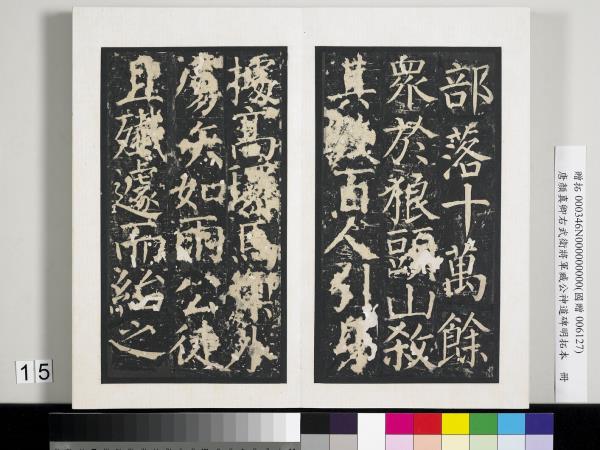 部落十萬餘
衆於狼頭山殺
其數百人引身
據高環馬禦外
虜矢如雨公徒
且殲遽而紿之
贈拓 000346N000000000(國贈 006127)
唐顏真卿右武衛將軍臧公神道碑明拓本 冊
15